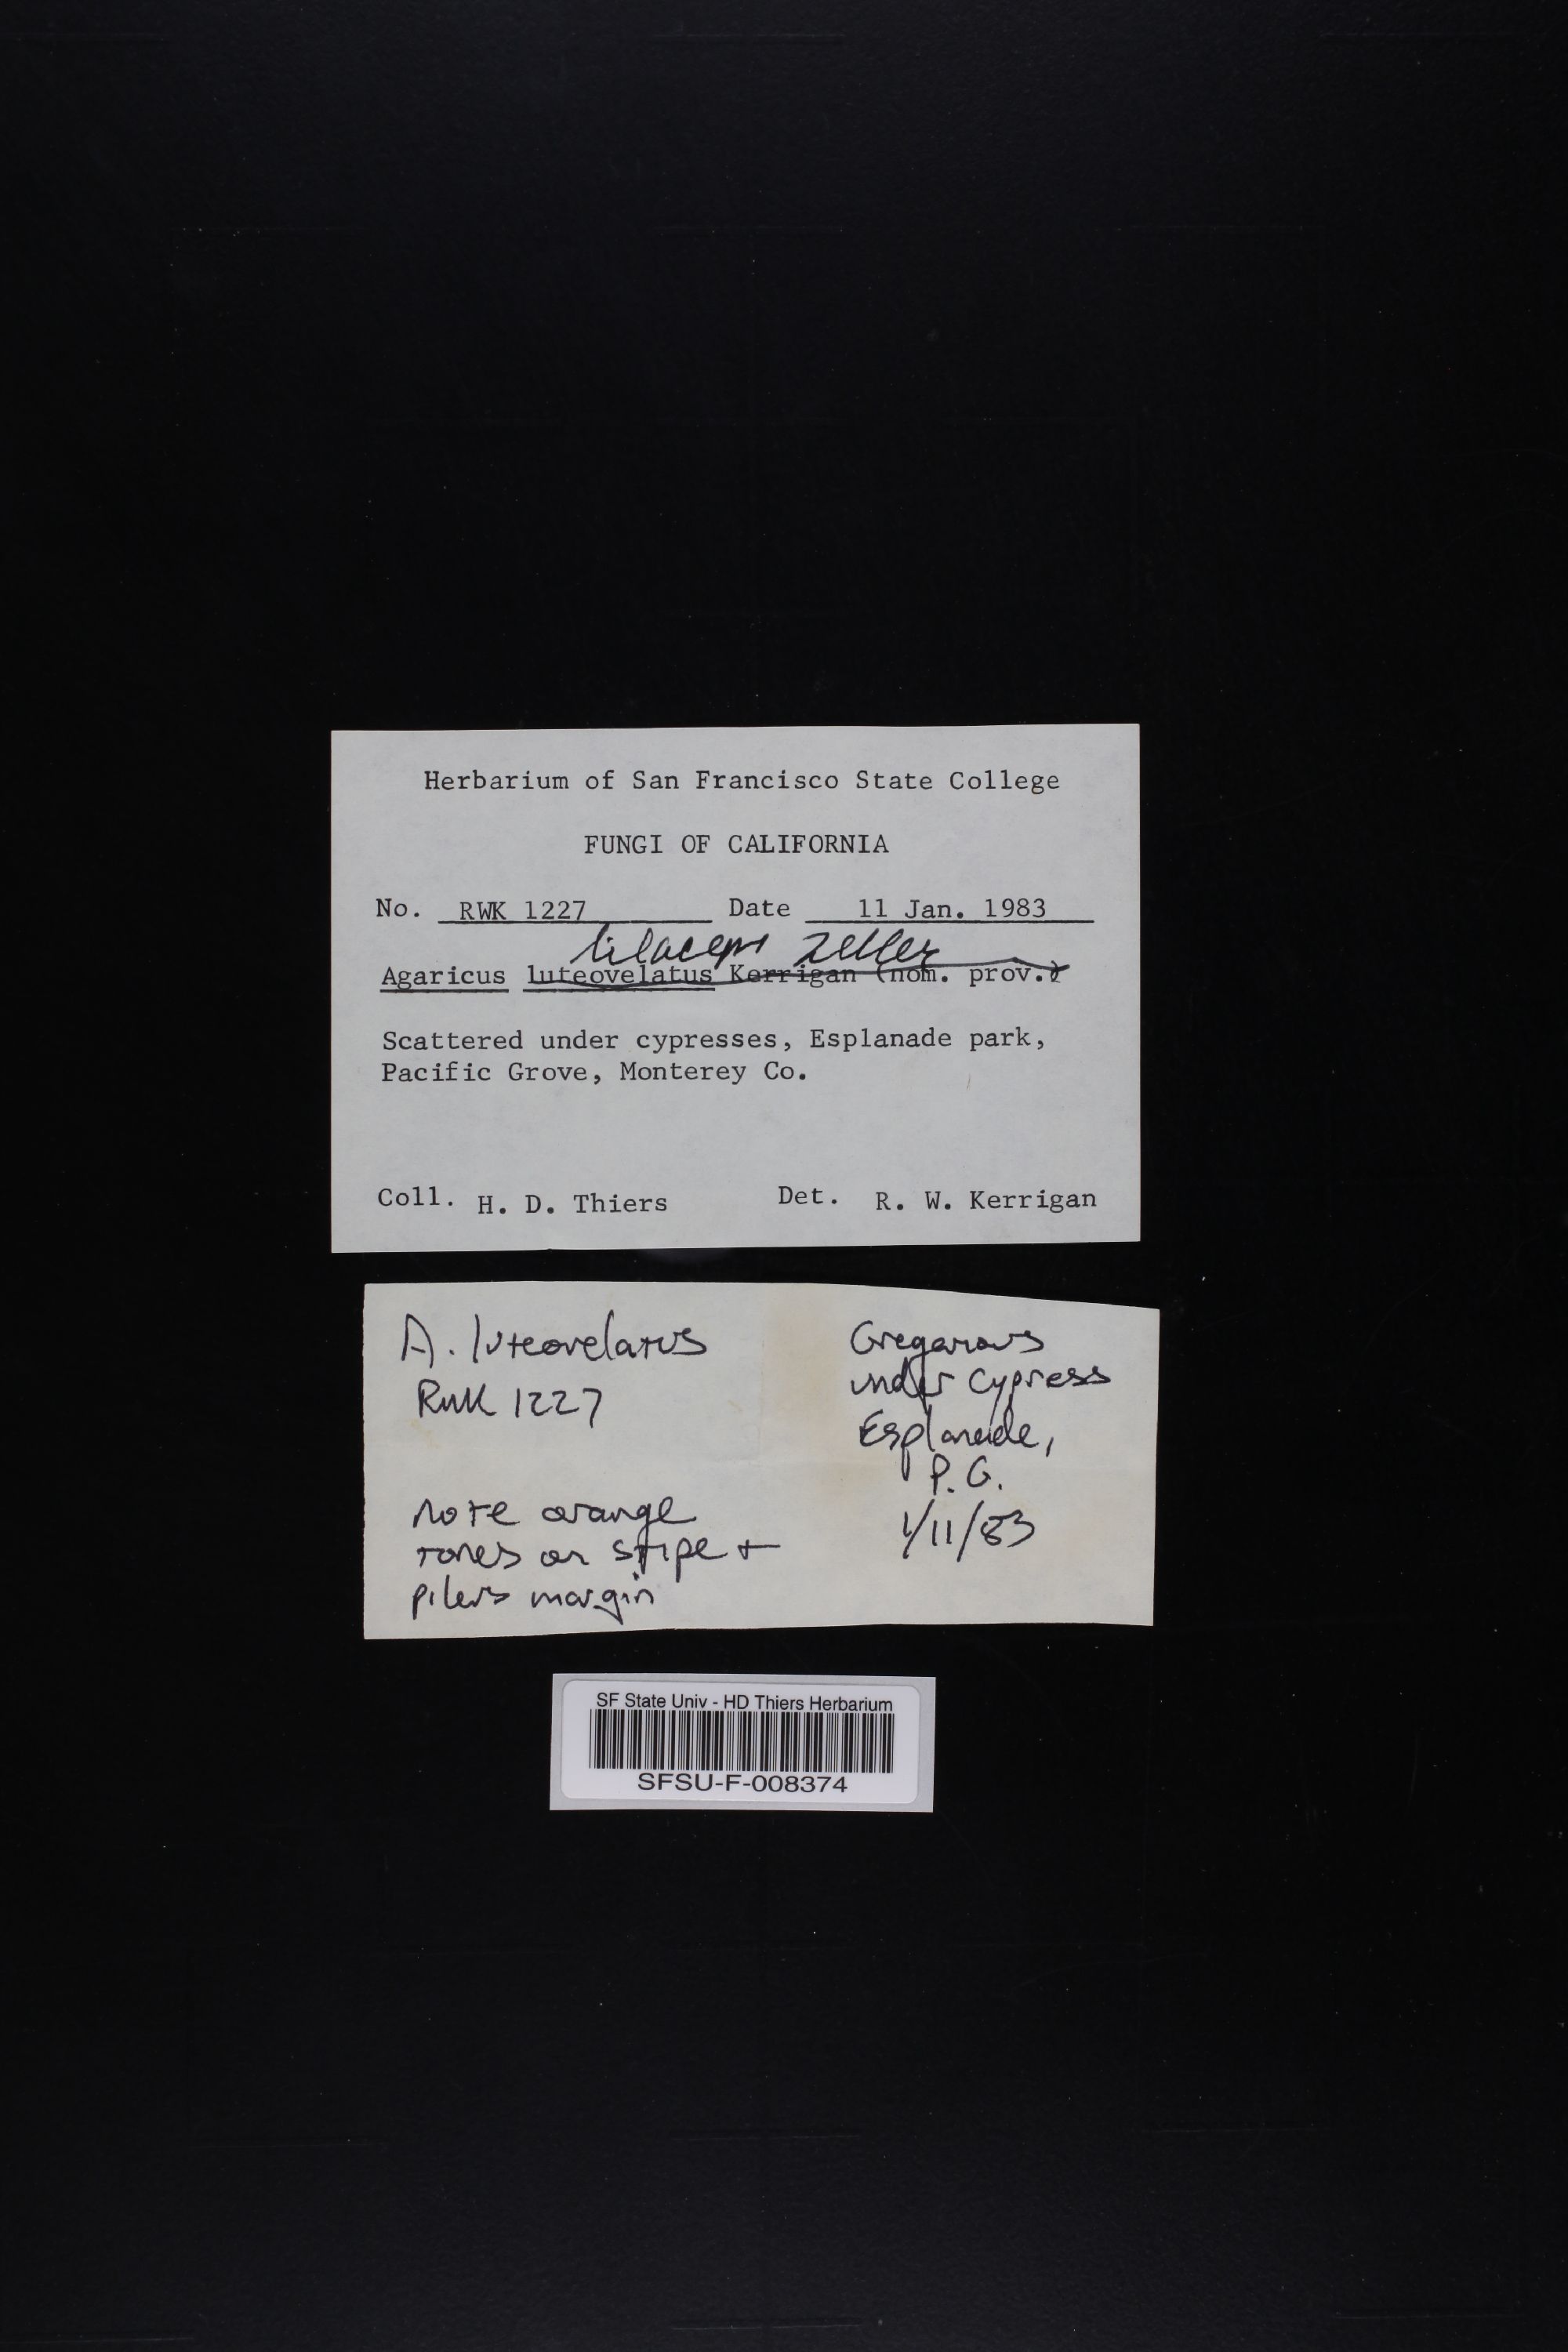 Herbarium of San Francisco State College
FUNGI OF CALIFORNIA
No. RWK 1227 Date 11 Jan. 1983
lilaceps Zeller
Agaricus luteovelatus Kerrigan (nom. prov.)
Scattered under cypresses, Esplanade park,
Pacific Grove, Monterey Co.
Coll. H. D. Thiers Det. R. W. Kerrigan
A. luteovelatus
RWK 1227
note orange
tones on stipe +
pileus margin
Gregarious
under cypress
Esplanade,
P.G.
1/11/83
SF State Univ - HD Thiers Herbarium
SFSU-F-008374